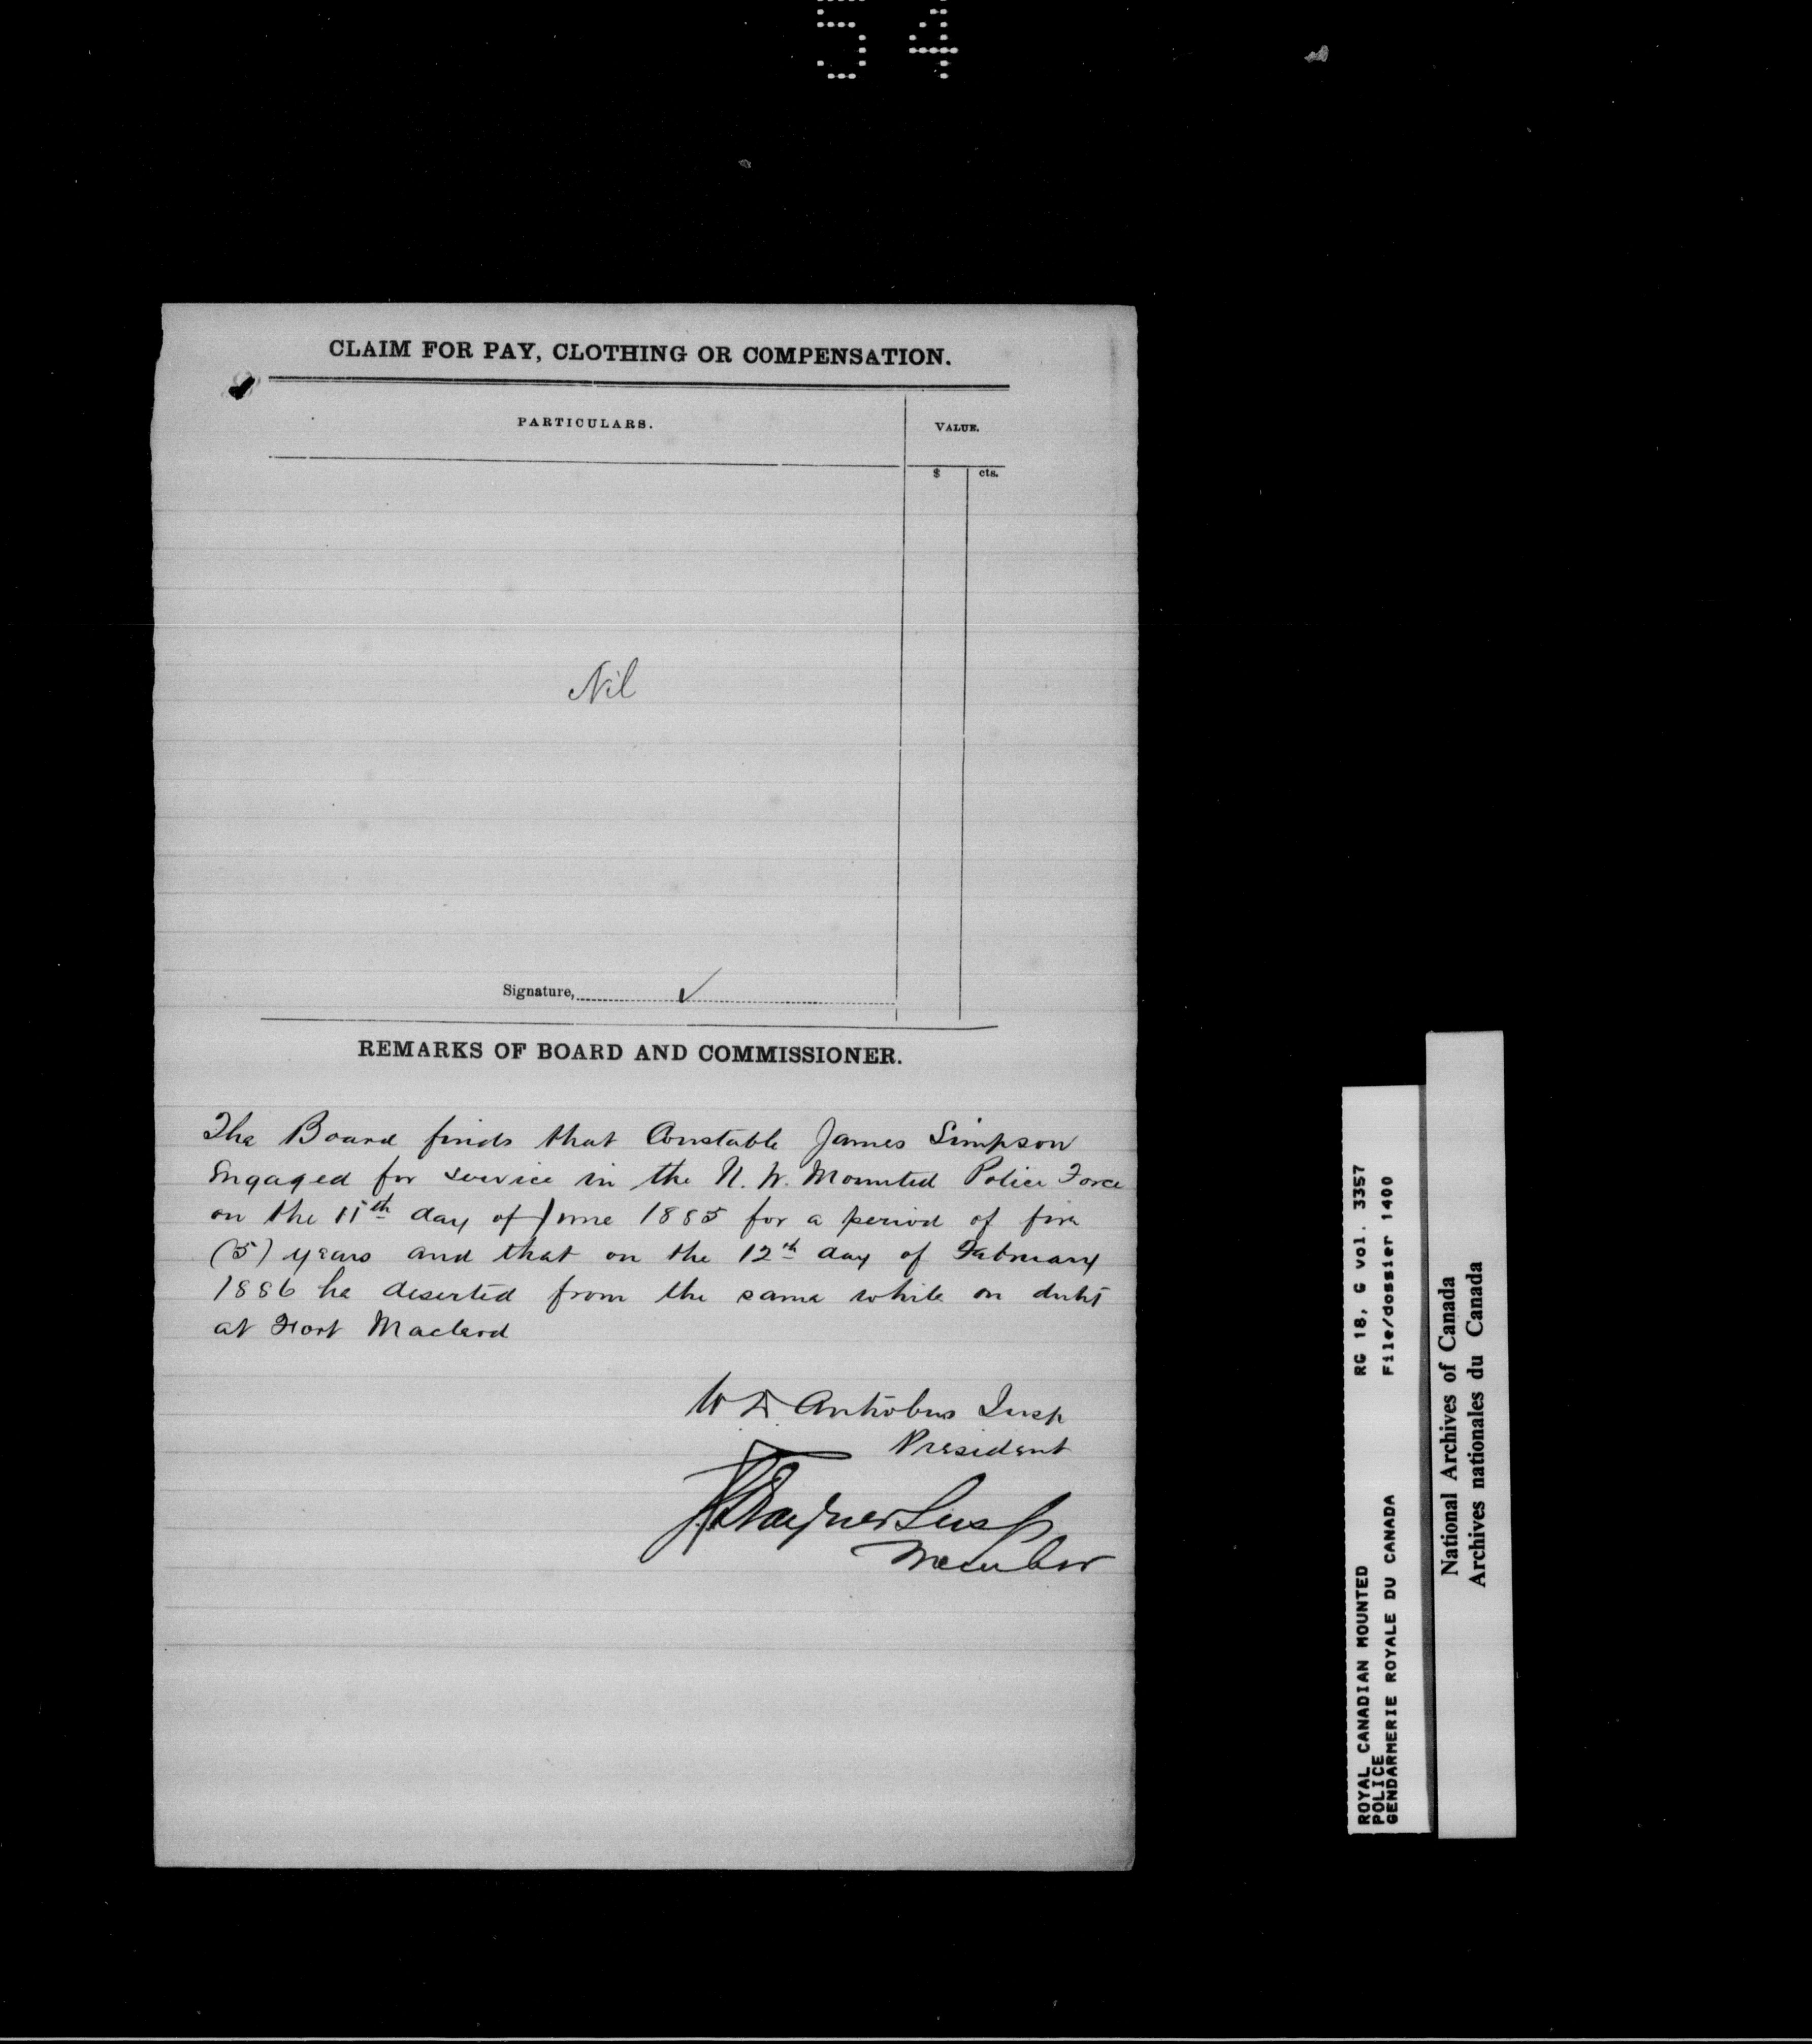 54
CLAIM FOR PAY, CLOTHING OR COMPENSATION.
PARTICULARS.
VALUE.
$ cts.
Nil
Signature, ✓
REMARKS OF BOARD AND COMMISSIONER.
The Board finds that Constable James Simpson
Engaged for service in the N. W. Mounted Police Force
on the 11th day of June 1885 for a period of five
(5) years and that on the 12th day of February
1886 he deserted from the same while on duty
at Fort Macleod
W D Antrobus Insp
President
Insp
Member
ROYAL CANADIAN MOUNTED RG 18, G vol. 3357
POLICE File/dossier 1400
GENDARMERIE ROYALE DU CANADA
National Archives of Canada
Archives nationales du Canada